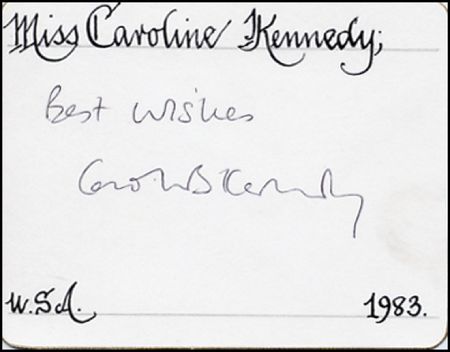 Miss Caroline Kennedy;
Best Wishes
Caroline B Kennedy
U.S.A.
1983.